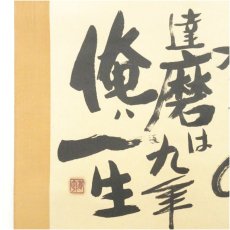 達磨は九年
俺は一生